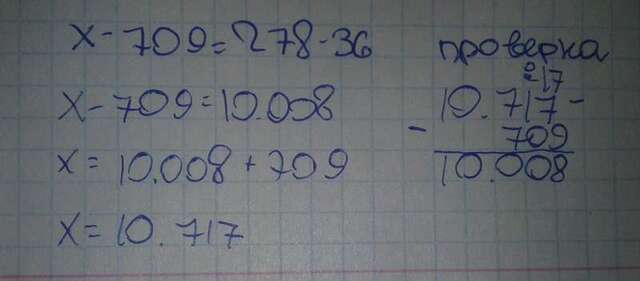 x - 709 = 278 - 36
x - 709 = 10.008
x = 10.008 + 709
x = 10.717
проверка
0 17
10.717 -
- 709
10.008